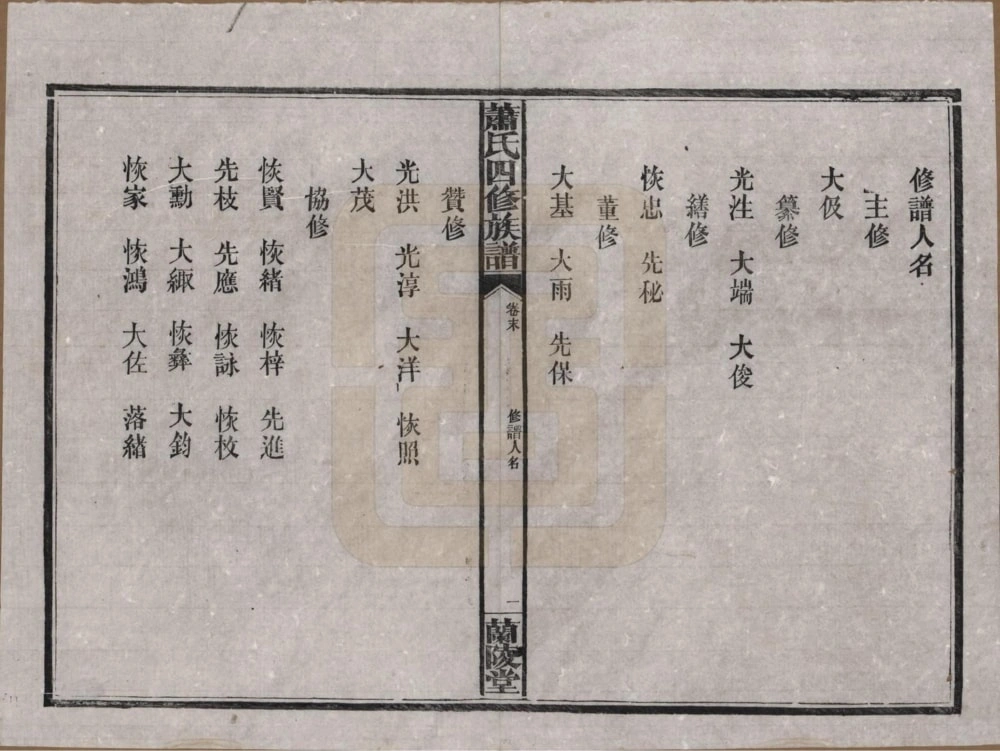 修譜人名
主修
大伋
纂修
光泩 大端 大俊
繕修
恢忠 先秘
董修
大基 大雨 先保
蕭氏四修族譜 卷末 修譜人名 一 蘭陵堂
贊修
光洪 光淳 大洋 恢照
大茂
協修
恢賢 恢緒 恢梓 先進
先枝 先應 恢詠 恢枚
大勳 大緅 恢彝 大鈞
恢家 恢鴻 大佐 落緒